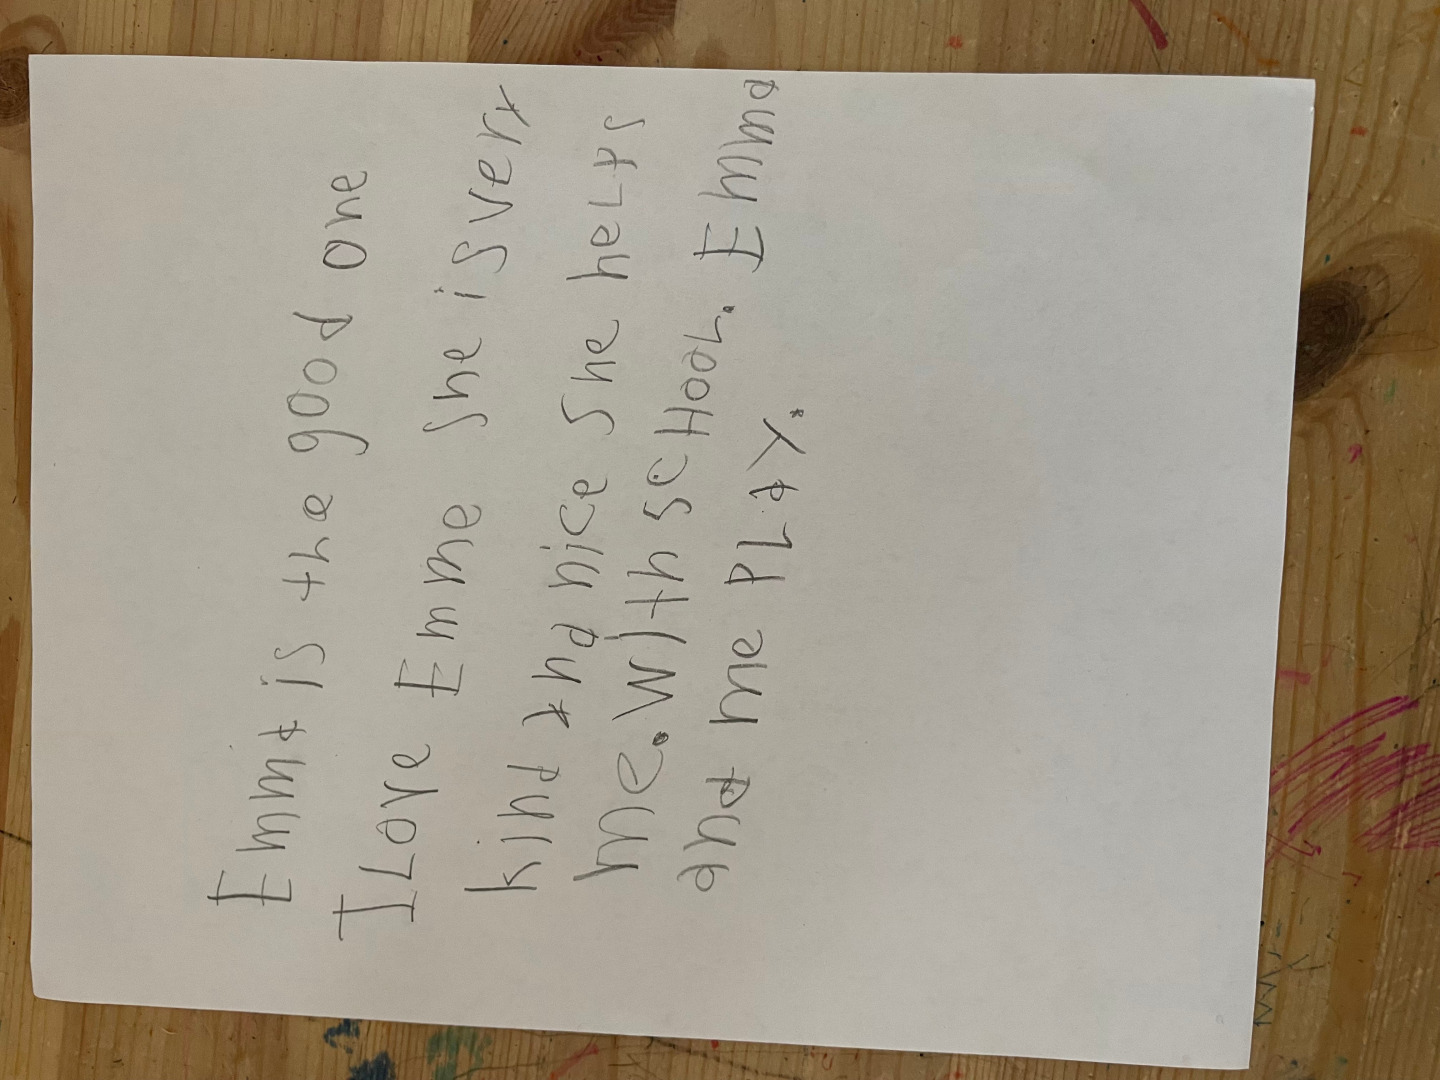 Emma is the good one
I Love Emme she is very
kind and nice She heLps
me. With scHooL. Emma
and me PLay.